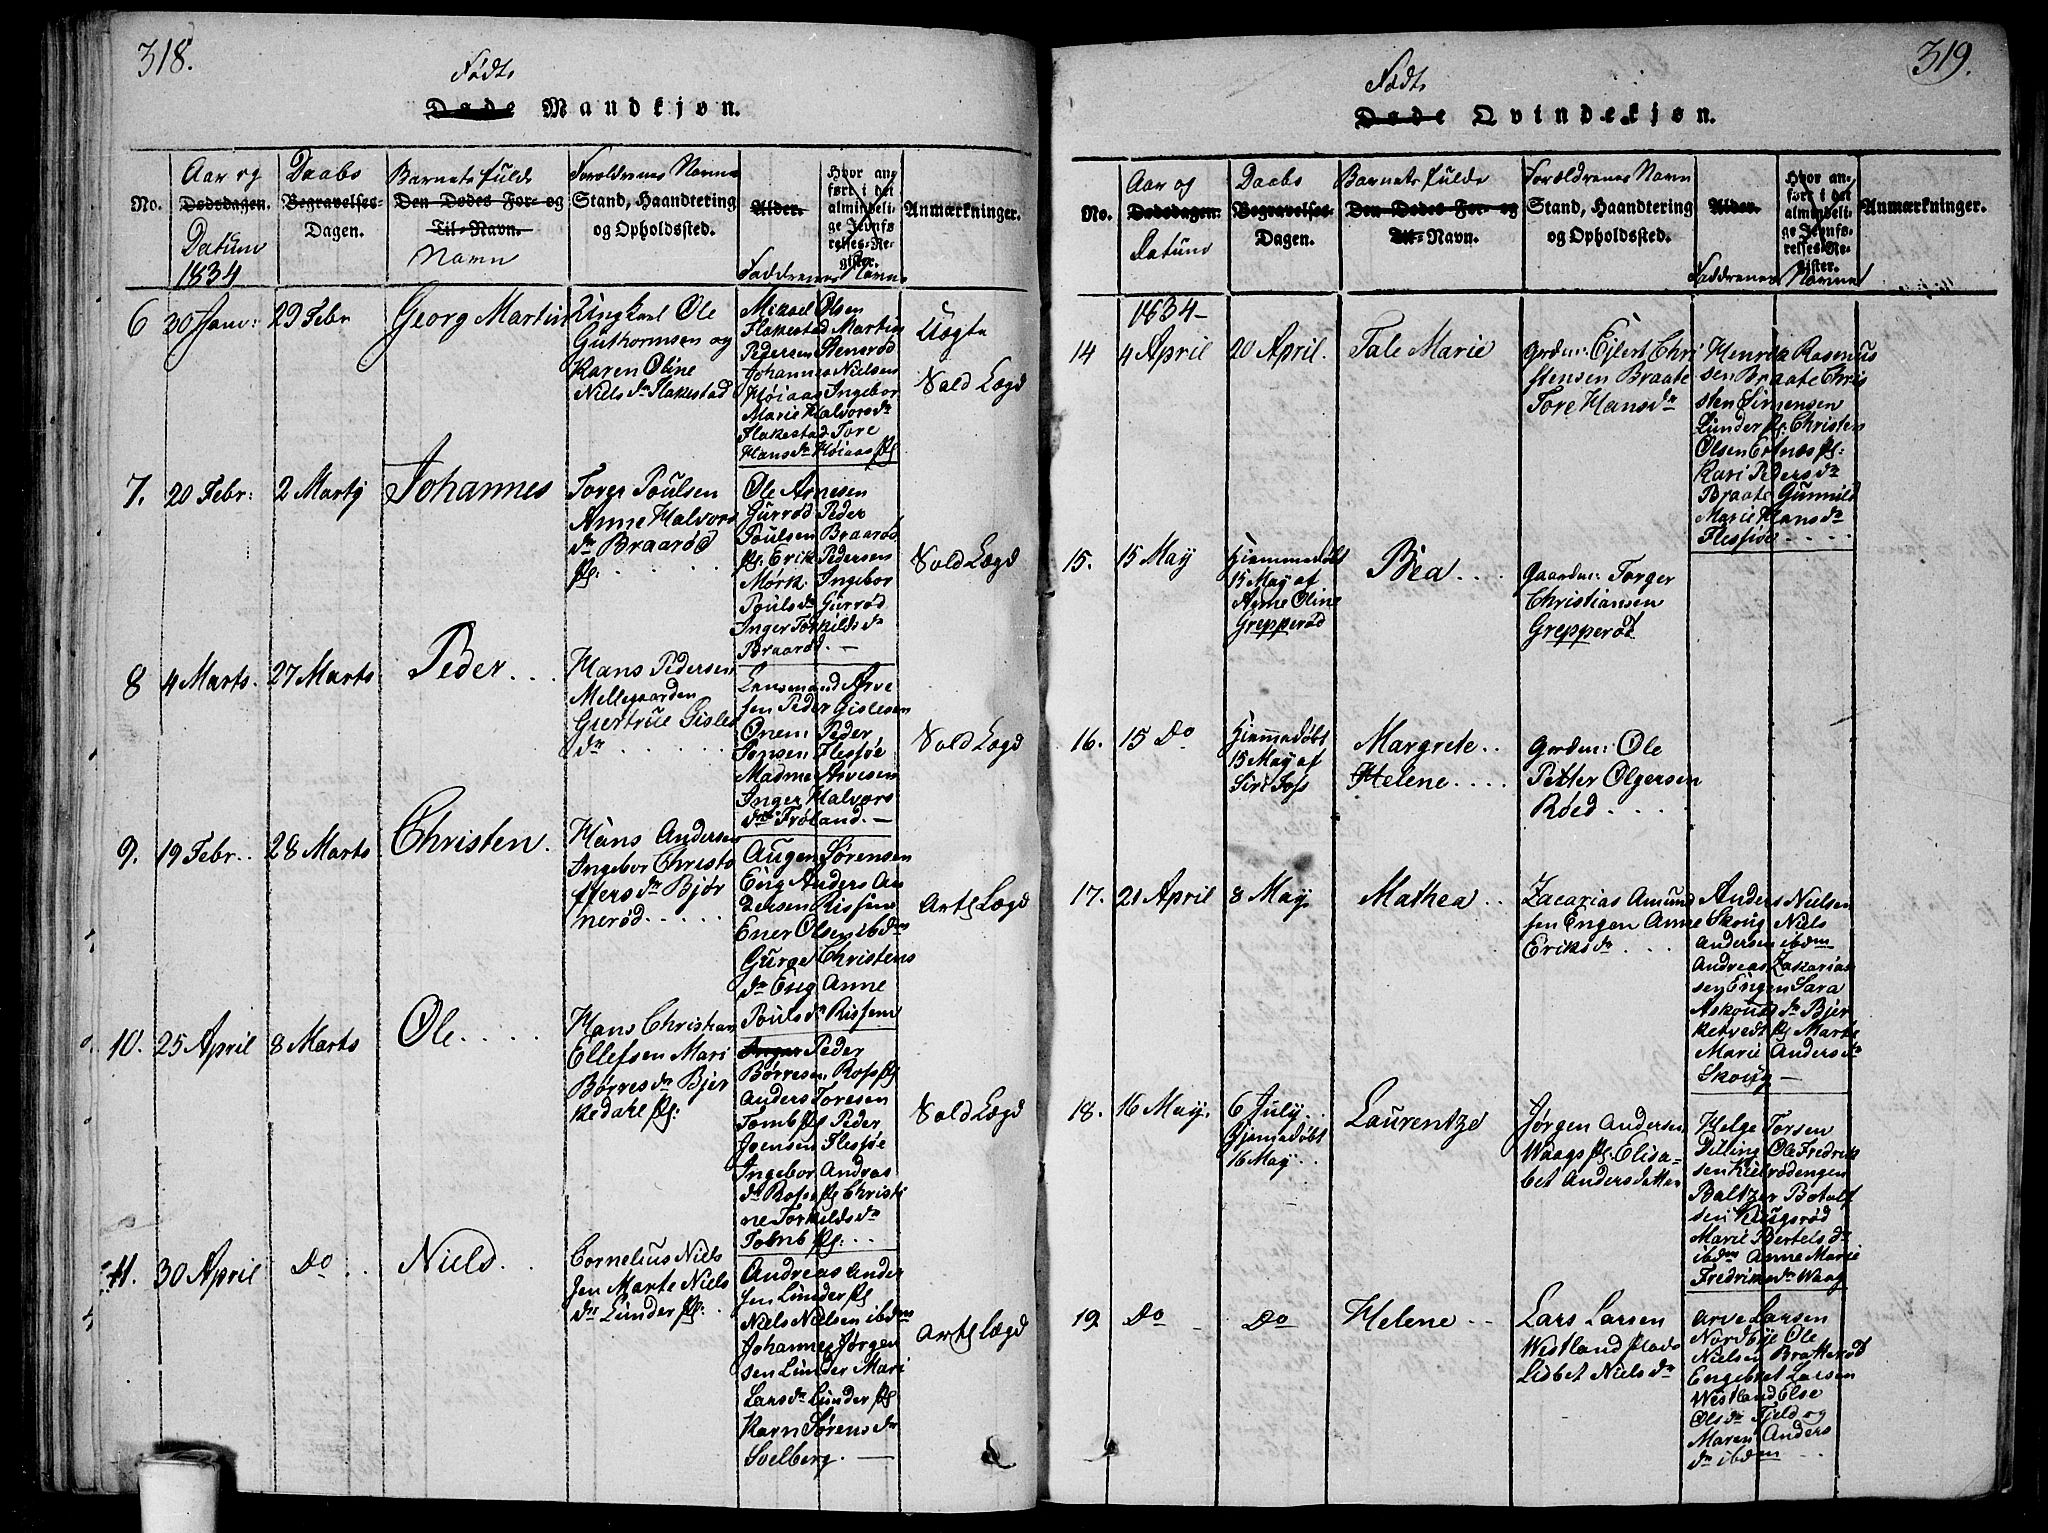 318.
Født
Døde Mandkjøn.
No.
Aar og
Dødsdagen.
Datum
1834
Daabs
Begravelses-
Dagen.
Barnets fulde
Den Dødes For- og
Til-Navn.
Navn
Forældrenes Navne
Stand, Haandtering
og Opholdssted.
Alder.
Hvor an-
ført i det
almindeli-
ge Jevnfø-
relses-Re-
gister.
Faddrenes Navne
Anmærkninger.
6 30 Jan: 23 Febr Georg Martin
Ungkarl Ole
Guthormsen og
Karen Oline
Niels dr Flakestad
Mikael Olsen
Flakestad Martin
Pedersen Stensrød
Johannes Nielsen
Høiaas Ingebor
Marie Halvors dr
Flakestad Tore
Hans dr Høiaas pl
Uægte
Vold Lægd
7. 20 Febr: 2 Martij Johannes
Torger Poulsen
Anne Halvors
dr Braarød
pl:
Ole Arnesen
Gurrød Peder
Poulsen Braarød
pl: Erik Pedersen
Mørk Ingebor
Pouls dr Gurrød
Inger Torkilds dr
Braarød. —
Vold Lægd
8 4 Marts. 27 Marts Peder
Hans Pedersen
Mellegaarden
Giertrue Gisles
dr
Lensmand Arve
sen Peder Gislesen
Onem Peder
Jonsen Flesjøe
Madme Arvesen
Inger Halvors
dr Frøland. —
Vold Lægd
9. 19 Febr. 28 Marts Christen.
Hans Andersen
Ingebor Christo
ffers dr Bjør
nerød
Augen Sørensen
Eng Anders An
dersen Rissem
Ener Olsen ibdm
Guroe Christens
dr Eng Anne
Pouls dr Rissem
Arts Lægd
10. 25 April 8 Marts Ole
Hans Christian
Ellefsen Mari
Børres dr Bjer
kedahl pl:
Inger Peder
Børresen Ross pl
Anders Toresen
Tomb pl Peder
Joensen Flesjøe
Ingebor Andras
dr Ross pl Christi
ne Torkilds dr
Tomb pl:
Vold Lægd
11. 30 April Do Niels
Cornelius Niels
sen Marte Niels
dr Lunder pl:
Andreas Ander
sen Lunder pl
Niels Nielsen ibdm
Johannes Jørgen
sen Lunder Mari
Lars dr Lunder pl
Karn Sørens dr
Solberg. —
Arts Lægd
319.
Født
Døde Qvindekjøn.
No.
Aar og
Dødsdagen.
Datum
Daabs
Begravelses-
Dagen.
Barnets fulde
Den Dødes For- og
Til-Navn.
Forældrenes Navn
Stand, Haandtering
og Opholdssted.
Alder.
Hvor an-
ført i det
almindeli-
ge Jevnfø-
relses-Re-
gister.
Faddrenes Navne
Anmærkninger.
1834
14 4 April 20 April. Tale Marie
Grdm: Ejlert Chri
stensen Braate
Tore Hans dr
Henrik Rasmus
sen Braate Chris
sten Simensen
Lunder pl: Christen
Olsen Ertnæs pl:
Kari Peders dr
Braate Gunnild
Marie Hans dr
Flesjøe
15. 15 May
Hiemmedøbt
15 May af
Anne Oline
Grepperød
Bea
Gaardm: Torger
Christiansen
Grepperød
16. 15 Do
Hiemmedøbt
15 May af
Siri Foss
Margrete
Helene
Grdm: Ole
Petter Olgersen
Røed
17. 21 April 8 May Mathea
Zacarias Amund
sen Engen Anne
Eriks dr
Anders Nielsen
Skoug Niels
Andersen ibdm
Andreas Zakarias
sen Engen Sara
Askouts dr Bjer
ketvedt pl Marte
Marie Anders dr
Skoug —
18. 16 May. 6 July
Hjemedøbt
16 May
Laurentze
Jørgen Andersen
Waags pl: Elisa-
bet Andersdatter
Helge Torsen
Dilling Ole Fredrik
sen Kielrødengen
Baltzer Botolf
sen Kiugsrød
Marie Bertels dr
ibdm Anne Marie
Fredriks dr Waag
19. Do Do Helene
Lars Larsen
Westland plads
Lisbet Niels dr
Arve Larsen
Nordbye Ole
Nielsen Bratterød
Engebret Larsen
Westland Else
Ols dr Fjeld og
Maren Anders
dr ibdm